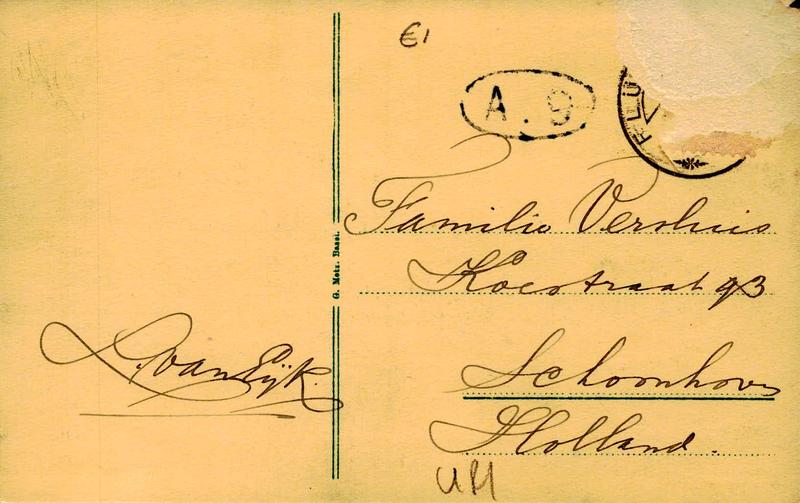 €1
A. 9
FLU
Familie Versluis
Koestraat 93
G. Metz, Basel.
L. van Eijk.
Schoonhoven
Holland.